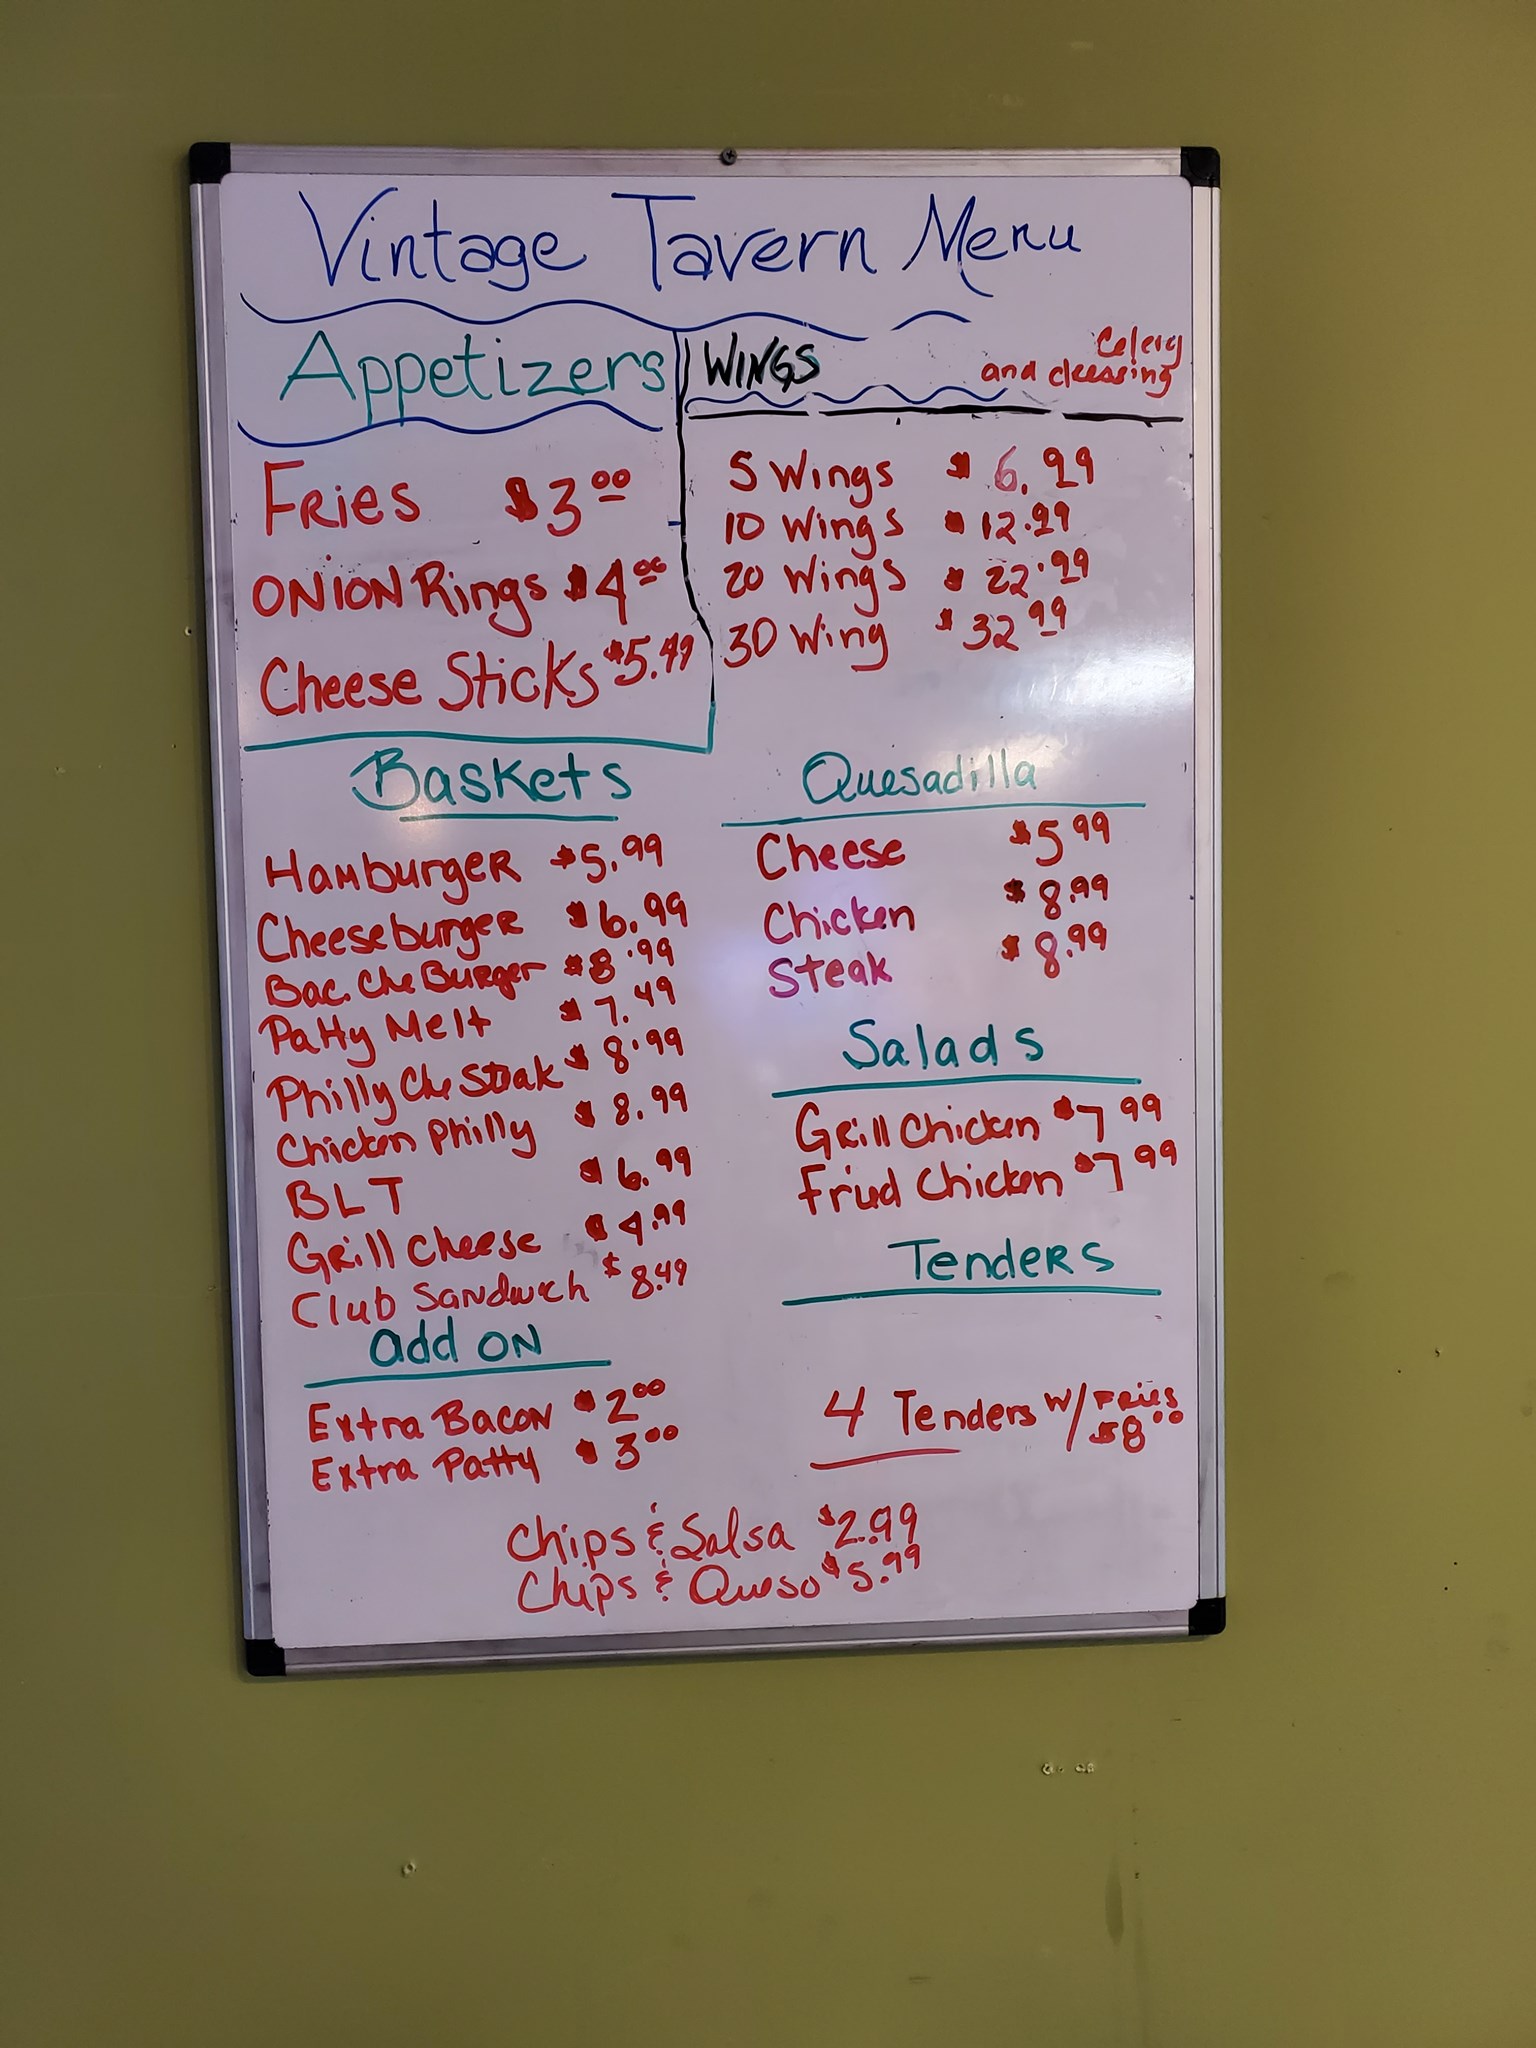 Vintage Tavern Menu
Appetizers
Fries $3.00
ONION Rings $4.00
Cheese Sticks $5.49
WINGS
Celery
and dressing
5 Wings $6.99
10 Wings $12.99
20 Wings $22.99
30 Wing $32.99
Baskets
Hamburger $5.99
Cheeseburger $6.99
Bac. Che Burger $8.99
Patty Melt $7.49
Philly Che Steak $8.99
Chicken Philly $8.99
BLT $6.99
Grill Cheese $4.99
Club Sandwich $8.49
add ON
Extra Bacon $2.00
Extra Patty $3.00
Quesadilla
Cheese $5.99
Chicken $8.99
Steak $8.99
Salads
Grill Chicken $7.99
Fried Chicken $7.99
Tenders
4 Tenders w/ Fries
$8.00
Chips & Salsa $2.99
Chips & Queso $5.99